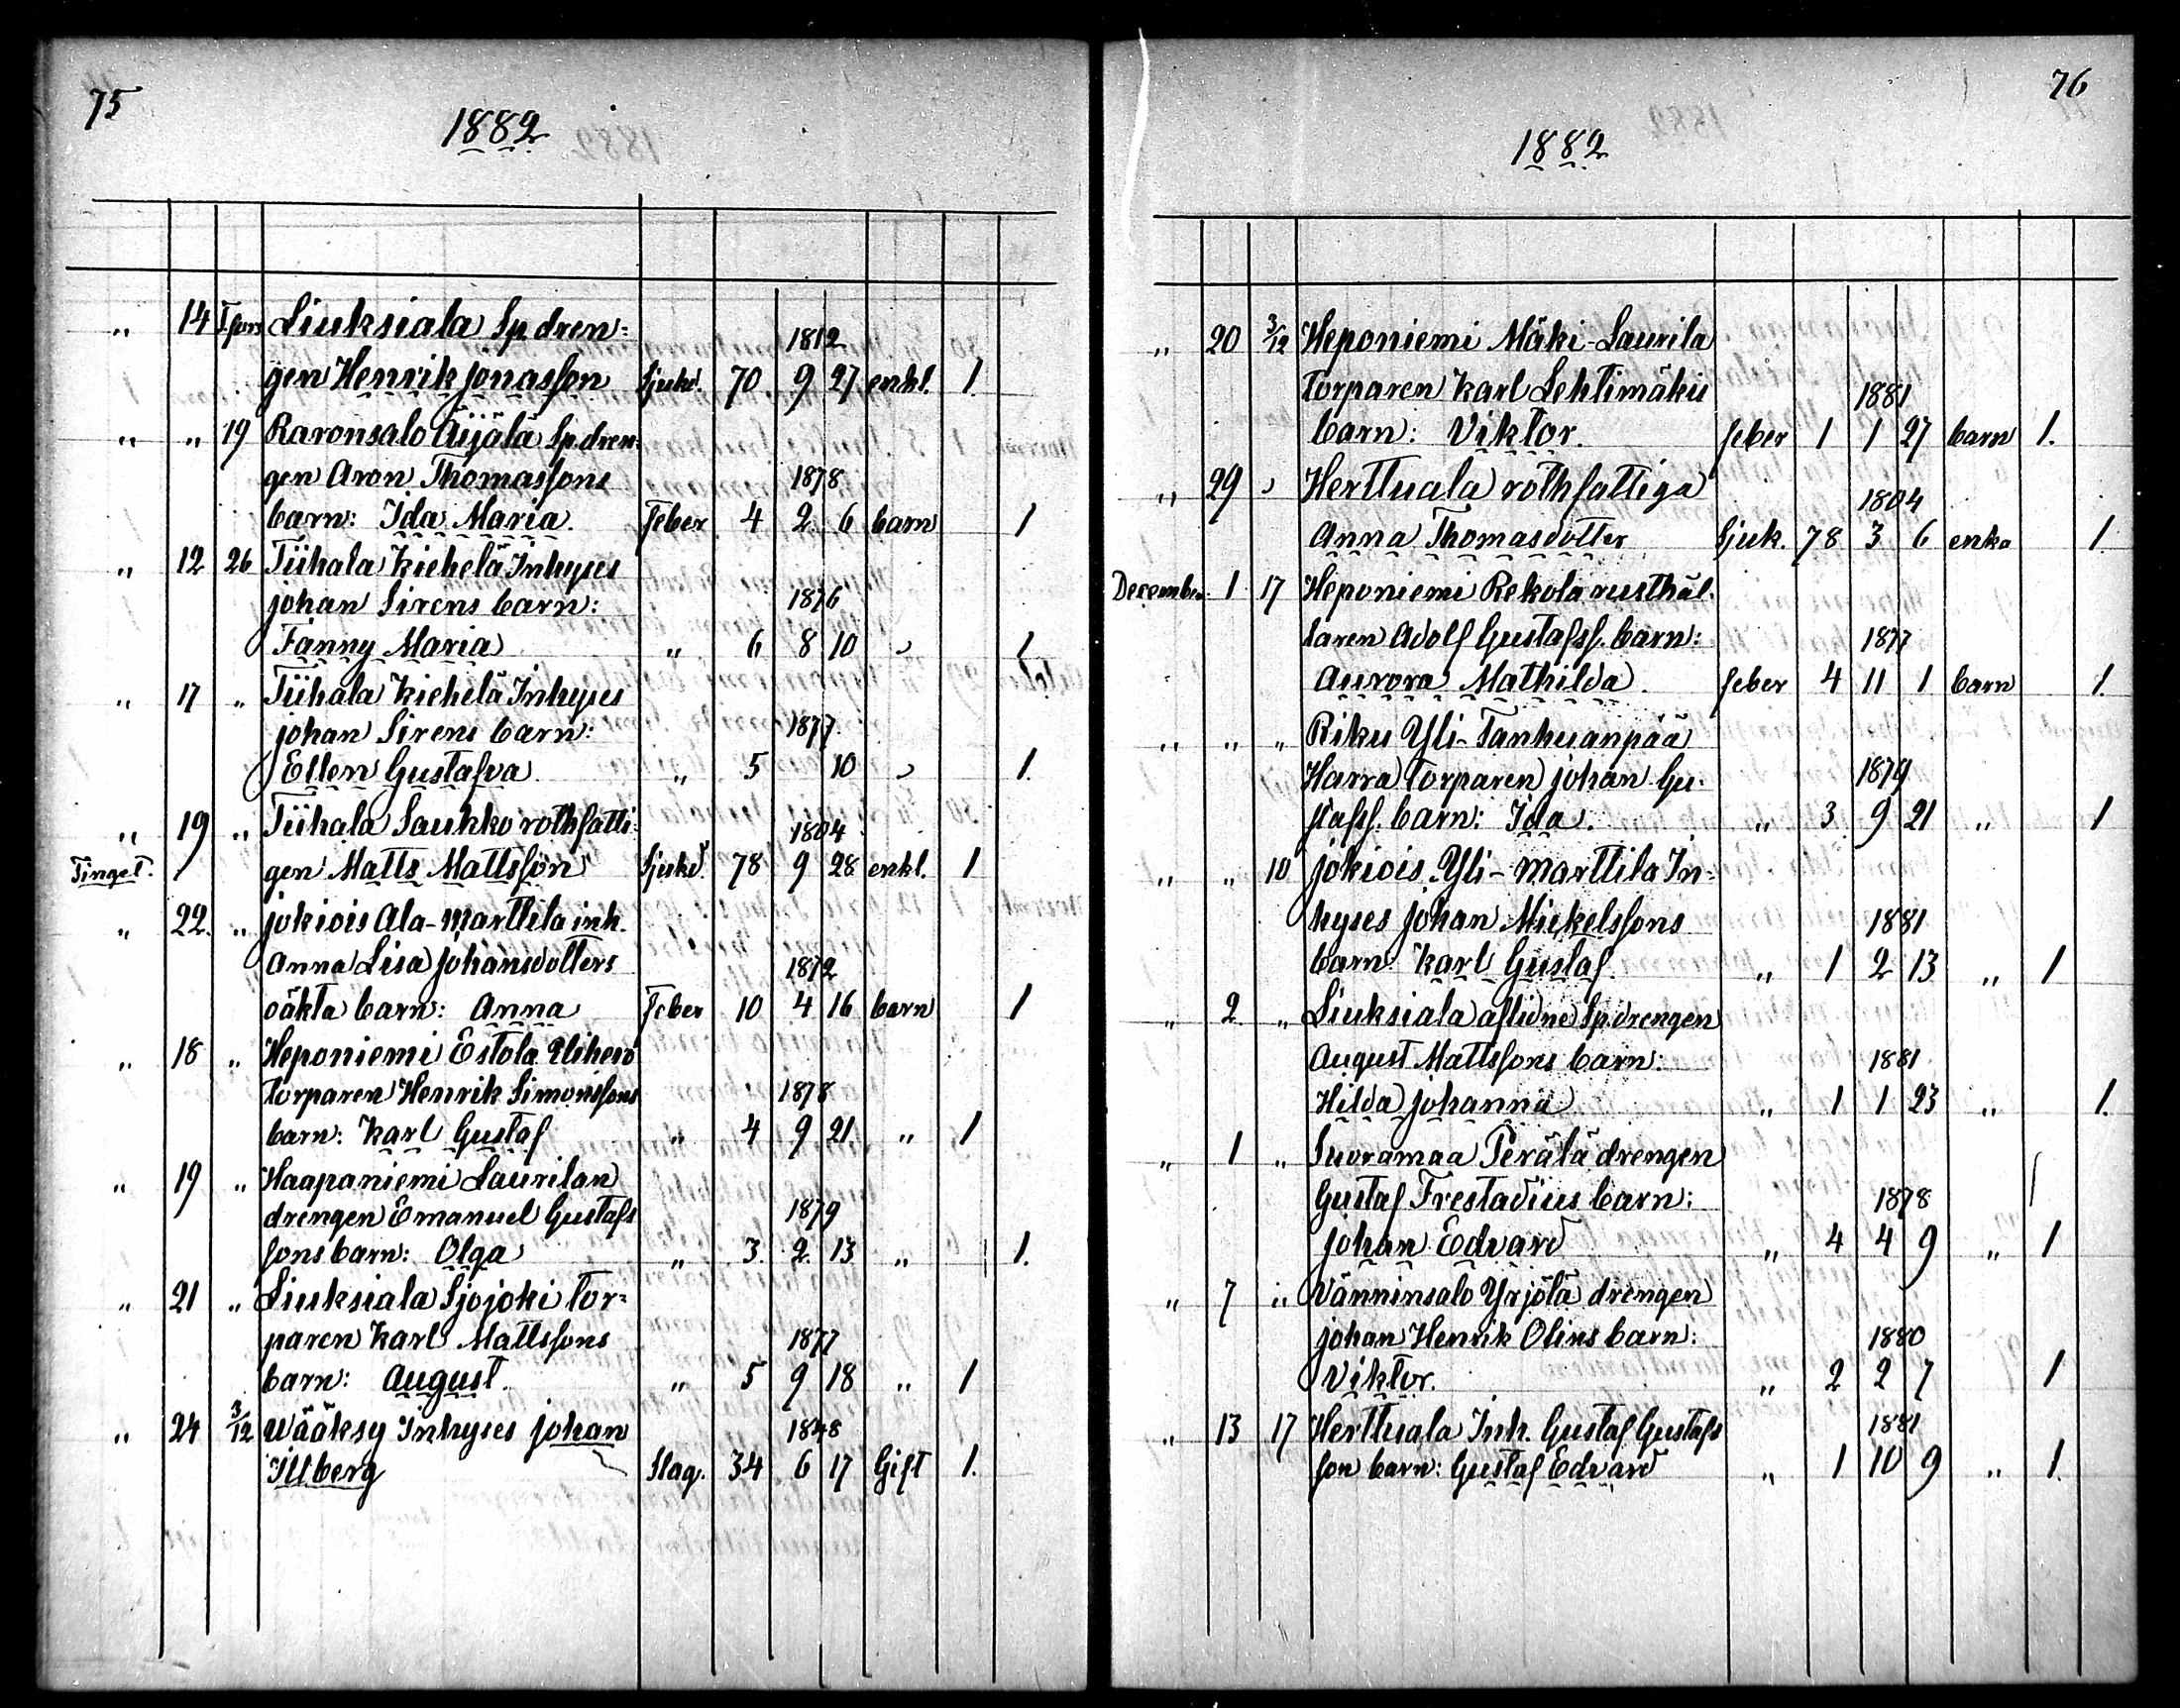 75
1882
„ 14 Tfors Liuksiala Sp. dren= 1812
gen Henrik Jonasson Sjukd. 70 9 27 enkl. 1.
„ „ 19 Raronsalo Äijälä Sp. dren=
gen Aron Thomassons 1878
barn: Ida Maria. Feber 4 2 6 barn 1
„ 12 26 Tiihala Kiehelä Inhyses
Johan Sirens barn: 1876
Fanny Maria „ 6 8 10 „ 1
„ 17 „ Tiihala Kiehelä Inhyses
Johan Sirens barn: 1877
Ellen Gustafva „ 5 10 „ 1.
„ 19 „ Tiihala Saukko rothfatti= 1804
Tingel. gen Matts Mattsson Sjukd. 78 9 28 enkl. 1
„ 22. „ Jokiois Ala-Marttila inh.
Anna Lisa Johansdotters 1872
oäkta barn: Anna Feber 10 4 16 barn 1
„ 18 „ Heponiemi Estola
torparen Henrik Simonssons 1878
barn: Karl Gustaf „ 4 9 21. „ 1
„ 19 „ Haapaniemi Laurilan
drengen Emanuel Gustafs 1879
sons barn: Olga „ 3. 2. 13 „ 1.
„ 21 „ Liuksiala Sjojoki tor=
paren Karl Mattssons 1877
barn: August. „ 5 9 18 „ 1
„ 24 3/12 Wääksy Inhyses Johan 1848
Illberg Slag. 34 6 17 Gift 1.
76
1882
„ 20 3/12 Heponiemi Mäki-Laurila
torparen Karl Lehtimäkis 1881
barn: Viktor. feber 1 1 27 barn 1.
„ 29 „ Herttuala rothfattiga 1804
Anna Thomasdotter Sjuk. 78 3 6 enka 1.
December. 1 17 Heponiemi Rekola rusthål.
laren Adolf Gustafss. barn: 1877
Aurora Mathilda. feber 4 11 1 barn 1.
„ „ „ Riku Yli-Tanhuanpää
Harra torparen Johan Gu- 1879
stafss. barn: Ida. „ 3. 9 21 „ 1
„ „ 10 Jokiois Yli-Marttila In=
hyses Johan Mickelssons 1881
barn: Karl Gustaf. „ 1 2 13 „ 1
„ 2. „ Liuksiala aflidne Sp. drengen
August Mattssons barn: 1881
Hilda Johanna „ 1 1 23 „ 1.
„ 1 „ Suoramaa Perälä drengen
Gustaf Frestadius barn: 1878
Johan Edvard „ 4 4 9 „ 1
„ 7 „ Vänninsalo Yrjölä drengen
Johan Henrik Olins barn: 1880
Viktor. „ 2 2 7 1
„ 13 17 Herttuala Inh. Gustaf Gustafs 1881
son barn: Gustaf Edvard „ 1 10 9 „ 1.